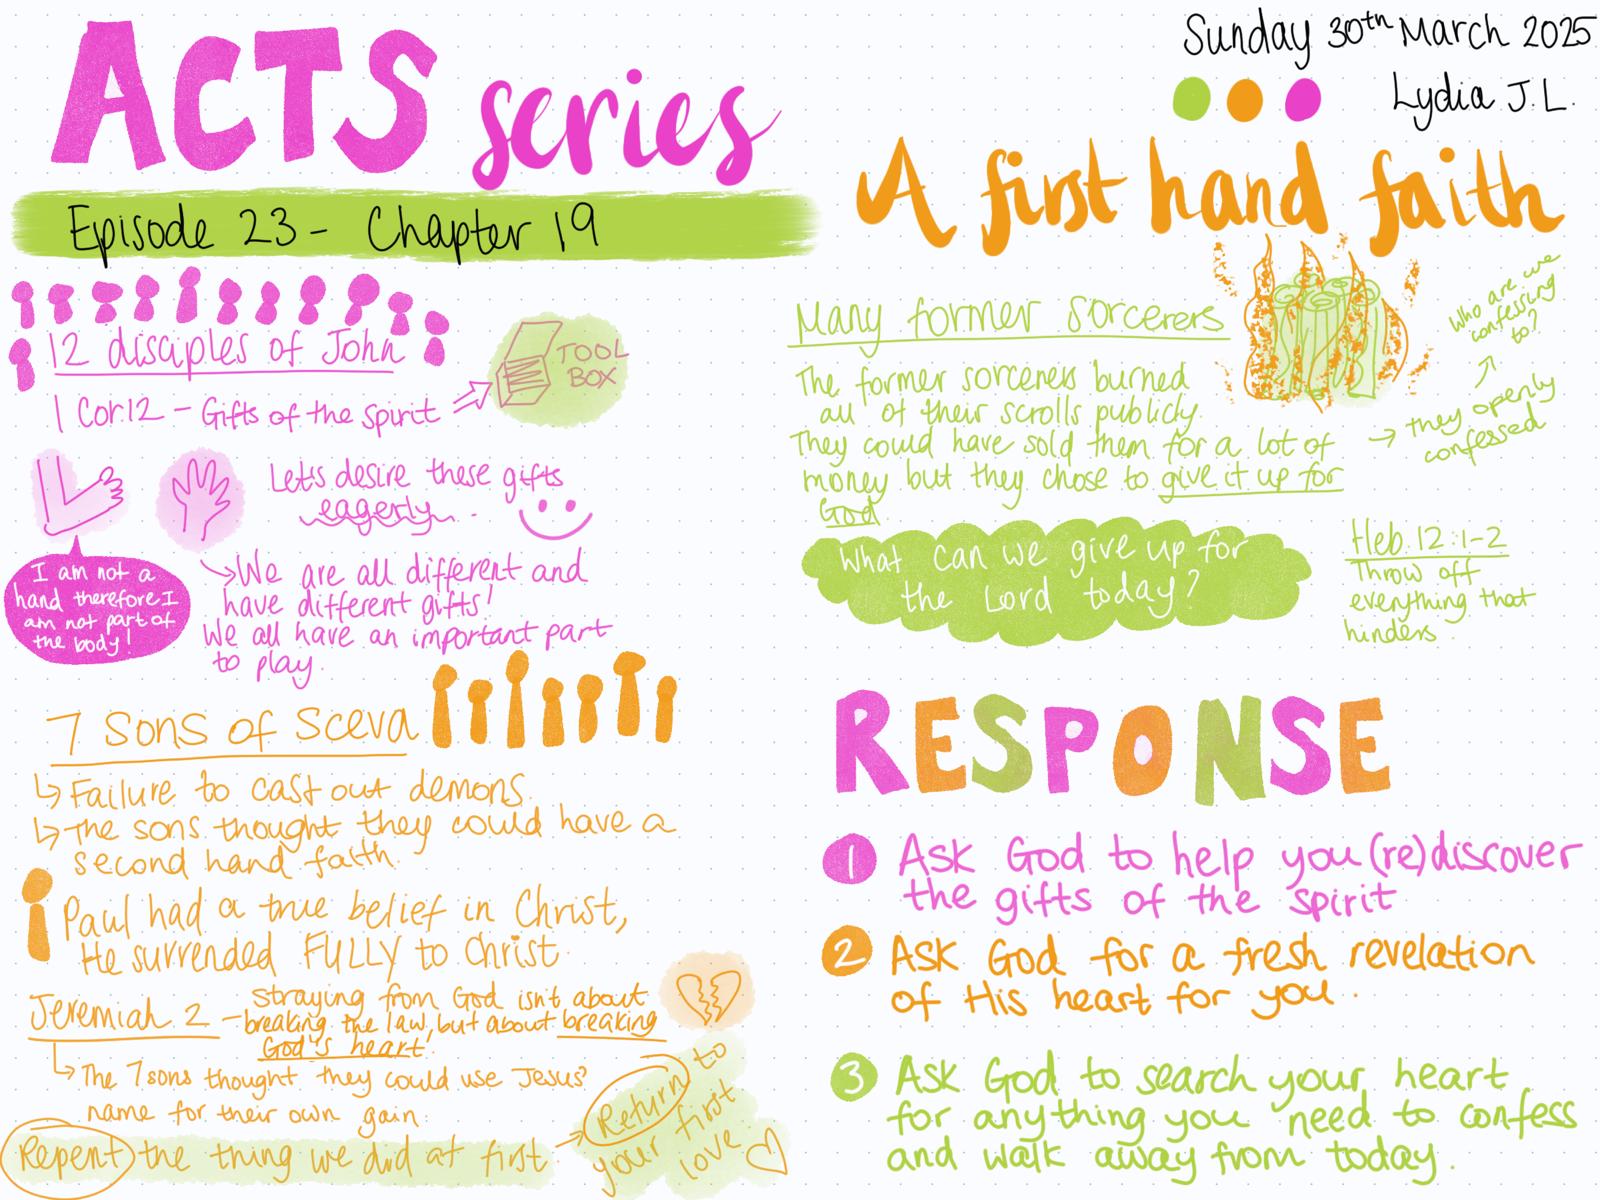 ACTS series
Episode 23 - Chapter 19
12 disciples of John
1 Cor 12 - Gifts of the Spirit
TOOL
BOX
Lets desire these gifts
eagerly.
I am not a
hand therefore I
am not part of
the body!
We are all different and
have different gifts!
We all have an important part
to play.
7 Sons of Sceva
Failure to cast out demons.
The sons thought they could have a
second hand faith.
Paul had a true belief in Christ,
He surrended FULLY to Christ.
Jeremiah 2 - straying from God isn't about
breaking the law, but about breaking
God's heart.
The 7 sons thought they could use Jesus'
name for their own gain.
Repent the thing we did at first
Return to
your first
love
Sunday 30th March 2025
Lydia J.L.
A first hand faith
Many former Sorcerers
The former sorcerers burned
all of their scrolls publicly.
They could have sold them for a lot of
money but they chose to give it up for
God
they openly
confessed
Who are we
confessing
to?
What can we give up for
the Lord today?
Heb. 12:1-2
Throw off
everything that
hinders.
RESPONSE
1 Ask God to help you (re)discover
the gifts of the spirit
2 Ask God for a fresh revelation
of His heart for you.
3 Ask God to search your heart
for anything you need to confess
and walk away from today.